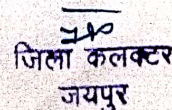 जिला कलक्टर
जयपुर